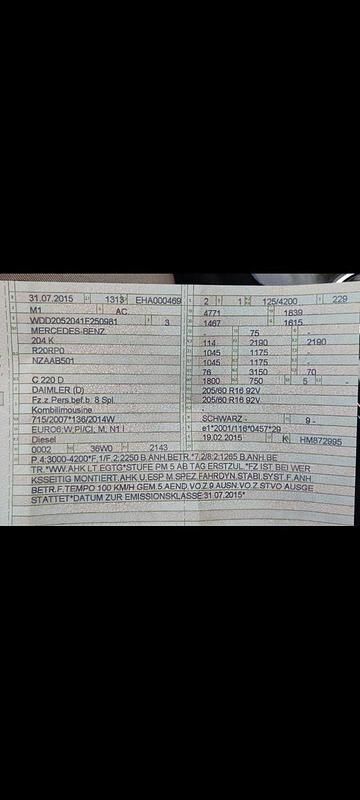 31.07.2015 1313 EHA000469
M1 AC
WDD2052041F250981 3
MERCEDES-BENZ
204 K
R20RP0
NZAAB501
C 220 D
DAIMLER (D)
Fz.z.Pers.bef.b. 8 Spl.
Kombilimousine
715/2007*136/2014W
EURO6;W;PI/CI; M, N1 I
Diesel
0002 36W0 2143
2 1 125/4200 229
4771 1839
1467 1615
- 75 -
114 2190 2190
1045 1175 -
1045 1175 -
76 3150 70
1800 750 5 -
205/60 R16 92V
205/60 R16 92V
SCHWARZ - 9 -
e1*2001/116*0457*29
19.02.2015 K HM872995
P.4:3000-4200*F.1/F.2:2250 B.ANH.BETR.*7.2/8.2:1265 B.ANH.BE
TR.*WW.AHK LT.EGTG*STUFE PM 5 AB TAG ERSTZUL.*FZ IST BEI WER
KSSEITIG MONTIERT.AHK U.ESP M.SPEZ.FAHRDYN.STABI.SYST.F.ANH
BETR.F.TEMPO 100 KM/H GEM.5.AEND.VO.Z.9.AUSN.VO.Z.STVO AUSGE
STATTET*DATUM ZUR EMISSIONSKLASSE:31.07.2015*